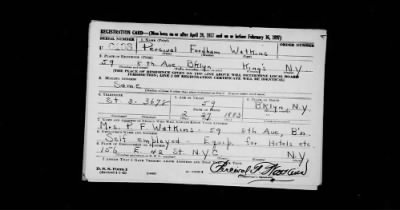 REGISTRATION CARD—(Men born on or after April 28, 1877 and on or before February 16, 1897)
SERIAL NUMBER 1. NAME (Print) ORDER NUMBER
U Percival Fordham Watkins
2. PLACE OF RESIDENCE (Print)
59 8th Ave, Bklyn King's N.Y.
[THE PLACE OF RESIDENCE GIVEN ON THE LINE ABOVE WILL DETERMINE LOCAL BOARD
JURISDICTION; LINE 2 OF REGISTRATION CERTIFICATE WILL BE IDENTICAL]
3. MAILING ADDRESS
Same
4. TELEPHONE 5. AGE IN YEARS 6. PLACE OF BIRTH
St. 3-3678 59 Bklyn,
DATE OF BIRTH
2 27 1883 N.Y.
7. NAME AND ADDRESS OF PERSON WHO WILL ALWAYS KNOW YOUR ADDRESS
Mrs. P. F. Watkins - 59 8th Ave, B'n.
8. EMPLOYER'S NAME AND ADDRESS
Self employed - Equip for Hotels etc.
9. PLACE OF EMPLOYMENT OR BUSINESS
156 E. 42 St. N.Y.C. N.Y.
I AFFIRM THAT I HAVE VERIFIED ABOVE ANSWERS AND THAT THEY ARE TRUE.
D. S. S. Form 1
Percival F. Watkins